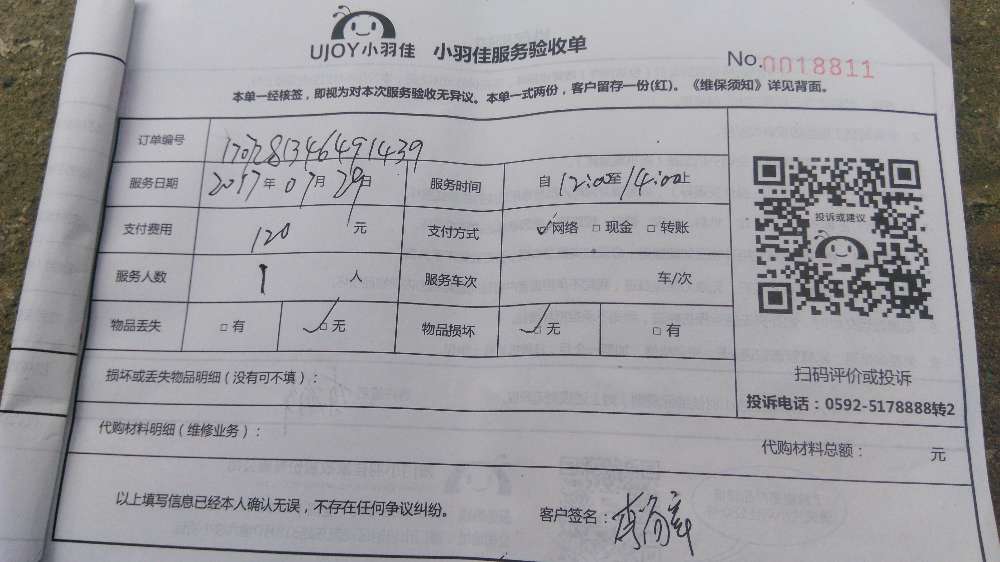 UJOY小羽佳 小羽佳服务验收单
No.0018811
本单一经核签，即视为对本次服务验收无异议。本单一式两份，客户留存一份(红)。《维保须知》详见背面。
订单编号 1707281346491439
服务日期 2017年07月29日 服务时间 自12:00至14:00止
支付费用 120 元 支付方式 ☑网络 □现金 □转账
投诉或建议
服务人数 1 人 服务车次 车/次
物品丢失 □有 ☑无 物品损坏 ☑无 □有
损坏或丢失物品明细（没有可不填）：
扫码评价或投诉
投诉电话：0592-5178888转2
代购材料明细（维修业务）： 代购材料总额： 元
以上填写信息已经本人确认无误，不存在任何争议纠纷。 客户签名：